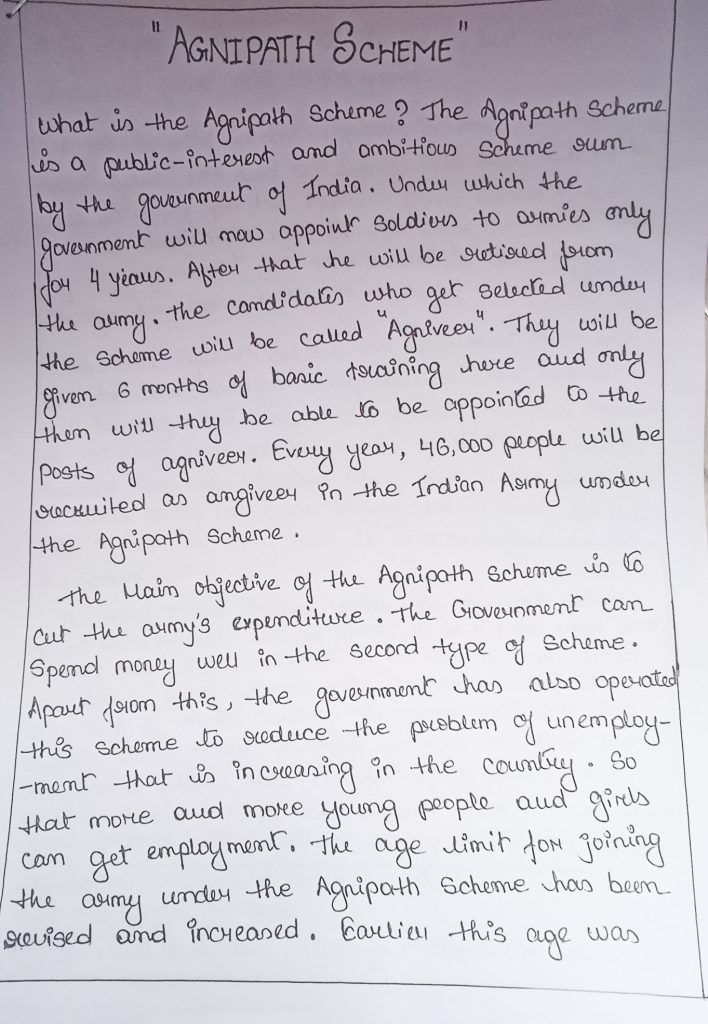 "AGNIPATH SCHEME"
What is the Agnipath Scheme? The Agnipath Scheme
is a public-interest and ambitious Scheme run
by the government of India. Under which the
government will now appoint Soldiers to armies only
for 4 years. After that he will be retired from
the army. The candidates who get selected under
the Scheme will be called "Agniveer". They will be
given 6 months of basic training here and only
then will they be able to be appointed to the
posts of agniveer. Every year, 46,000 people will be
recruited as angiveer in the Indian Army under
the Agnipath Scheme.
The Main objective of the Agnipath Scheme is to
cut the army's expenditure. The Government can
Spend money well in the second type of Scheme.
Apart from this, the government has also operated
this scheme to reduce the problem of unemploy-
-ment that is increasing in the country. So
that more and more young people and girls
can get employment. The age limit for joining
the army under the Agnipath Scheme has been
revised and increased. Earlier this age was